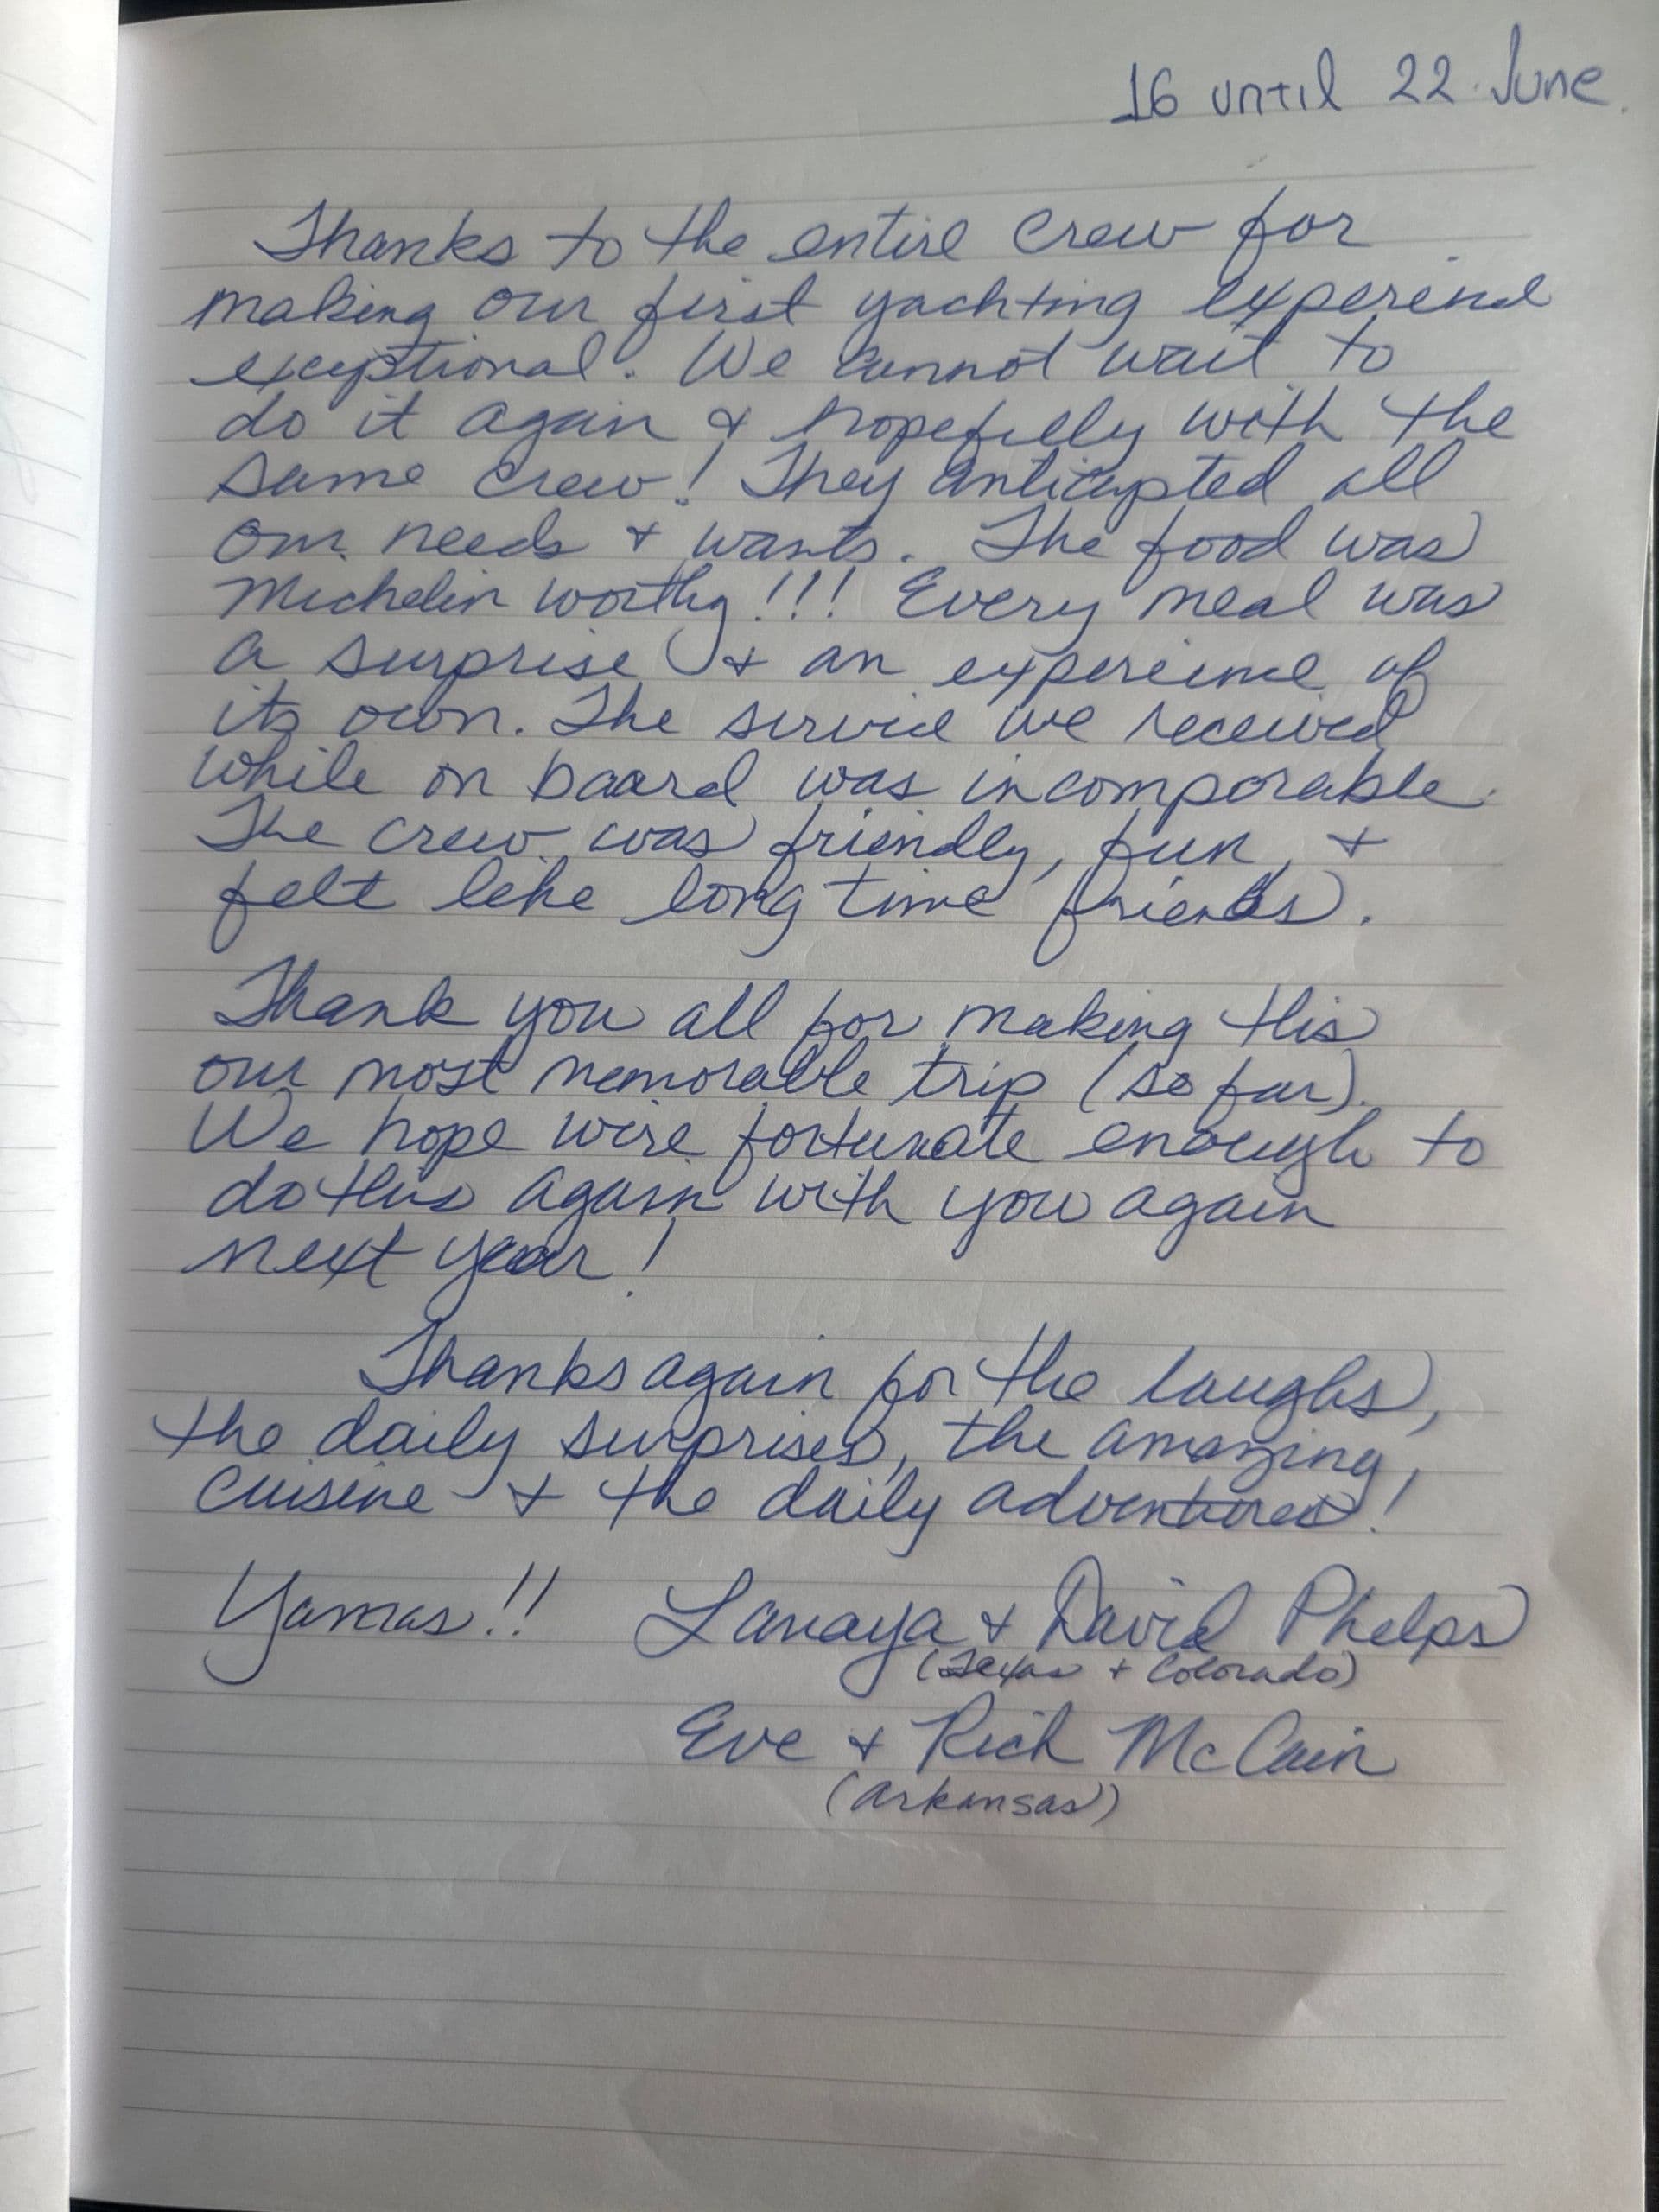 16 until 22 June.
Thanks to the entire crew for
making our first yachting experience
exceptional. We cannot wait to
do it again & hopefully with the
same crew! They anticipated all
our needs + wants. The food was
Michelin worthy!!! Every meal was
a surprise + an experience of
its own. The service we received
while on board was incomparable.
The crew was friendly, fun, +
felt like long time friends.
Thank you all for making this
our most memorable trip (so far).
We hope we're fortunate enough to
do this again with you again
next year!
Thanks again for the laughs,
the daily surprises, the amazing,
cuisine + the daily adventures!
Yamas!! Lanaya + David Phelps
(Texas + Colorado)
Eve + Rich McCain
(Arkansas)